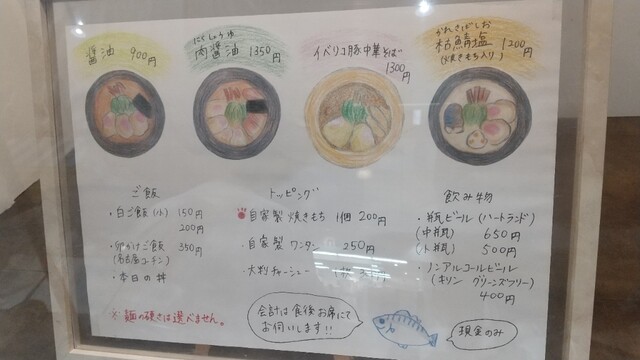 醤油 900円
にくしょうゆ
肉醤油 1350円
イベリコ豚中華そば
1300円
かれさばしお
枯鯖塩 1200円
(焼きもち入り)
ご飯
・白ご飯(小) 150円
200円
・卵かけご飯 350円
(名古屋コーチン)
・本日の丼
※麺の硬さは選べません。
トッピング
自家製焼きもち 1個 200円
・自家製ワンタン 250円
・大判チャーシュー
会計は食後お席にて
お伺いします!!
飲み物
・瓶ビール(ハートランド)
(中瓶) 650円
(小瓶) 500円
・ノンアルコールビール
(キリン グリーンズフリー)
400円
現金のみ